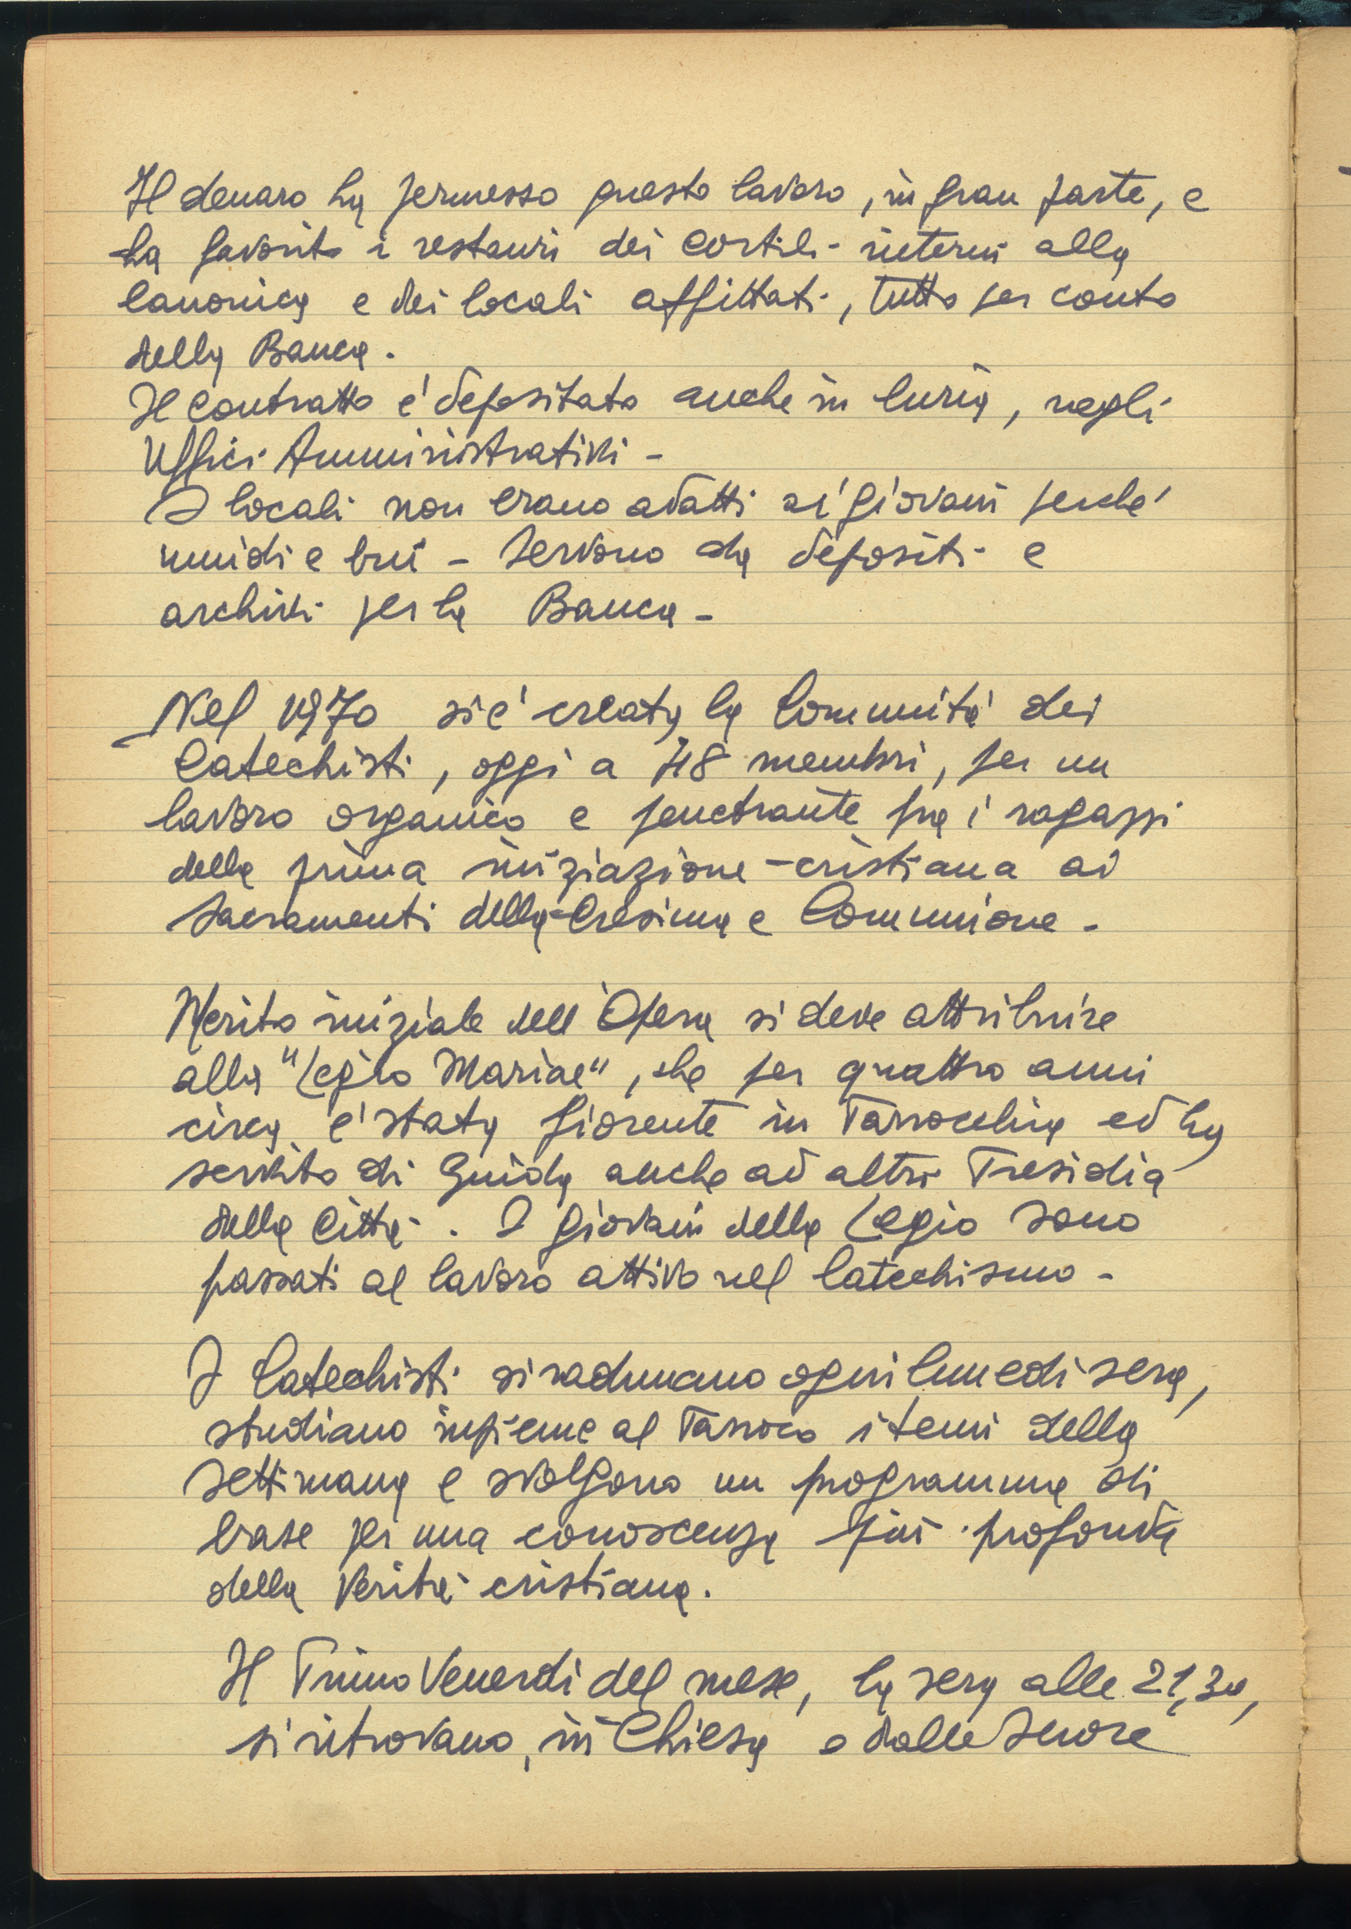 Il denaro ha permesso questo lavoro, in gran parte, e
ha favorito i restauri dei cortili interni alla
Canonica e dei locali affittati, tutto per conto
della Banca.
Il contratto e' depositato anche in Curia, negli
Uffici Amministrativi -
I locali non erano adatti ai giovani perche'
umidi e bui - Servono da depositi e
archivi per la Banca -
Nel 1970 si e' creata la Comunita' dei
Catechisti, oggi a 48 membri, per un
lavoro organico e penetrante fra i ragazzi
della prima iniziazione cristiana ai
Sacramenti della Cresima e Comunione -
Merito iniziale dell'Opera si deve attribuire
alla "Legio Mariae", che per quattro anni
circa e' stata fiorente in Parrocchia ed ha
servito di Guida anche ad altri Presidia
della Citta'. I giovani della Legio sono
passati al lavoro attivo nel Catechismo -
I Catechisti si radunano ogni lunedi sera,
studiano insieme al Parroco i temi della
Settimana e svolgono un programma di
base per una conoscenza piu' profonda
della Verita' cristiana.
Il Primo Venerdi del mese, la sera alle 21,30,
si ritrovano, in Chiesa o dalle Suore